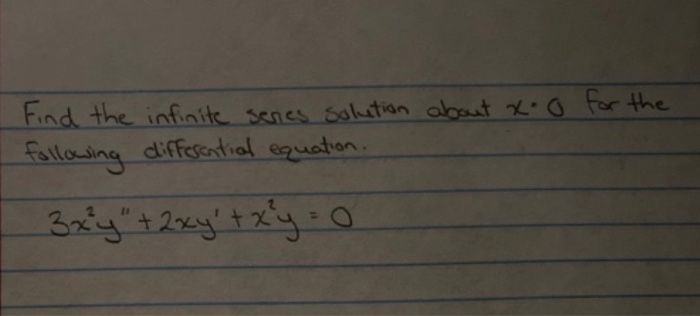 Find the infinite series solution about x = 0 for the
following differential equation.
3x²y" + 2xy' + x²y = 0